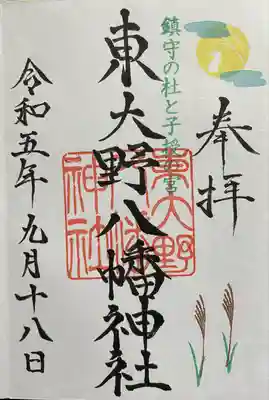 奉拝
鎮守の杜と子授の宮
東大野八幡神社
東大野
八幡
神社
令和五年九月十八日